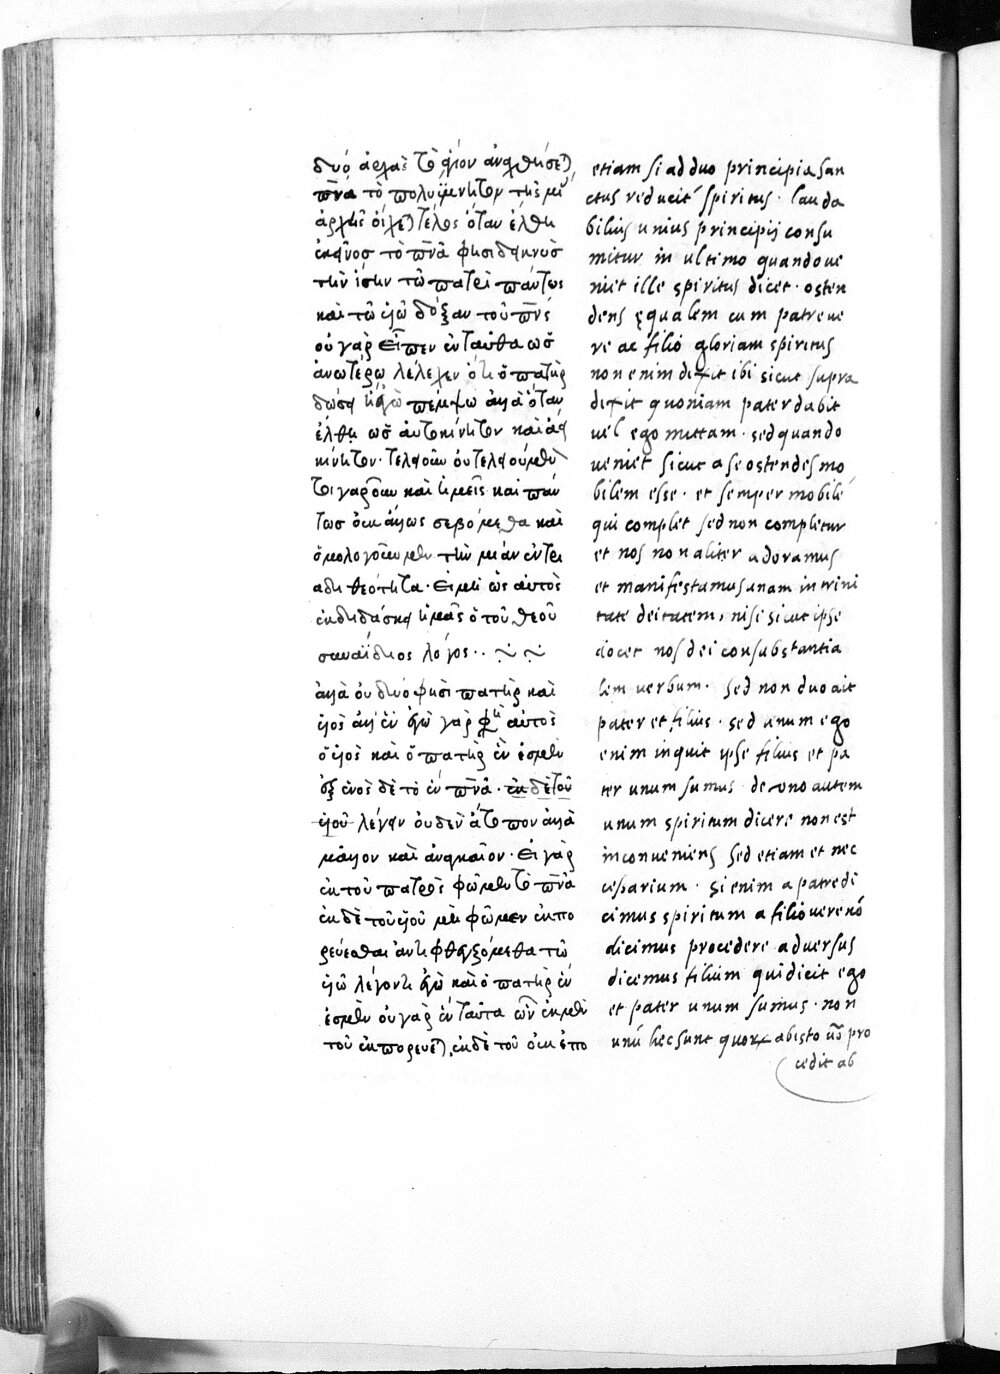 δυό ἀρχὰς τὸ ἅγιον ἀναχθήσεται
πνα τὸ πολυΰμνητον τῆς μι
ἀρχῆς οἴχεται τέλος ὅταν ἔλθη
ἐκεῖνος τὸ πνα φησὶ δεικνυς
τὴν ἴσην τῶ πατρὶ πάντως
καὶ τῶ υἱῶ δόξαν τοῦ πνς
οὐ γὰρ εἶπεν ἐνταῦθα ὡς
ἀνωτέρω λέλεχεν ὅτι ὁ πατὴρ
δώσει ἢ ἐγὼ πέμψω ἀλλὰ ὅταν
ἔλθη ὡς αὐτοκίνητον καὶ ἀει
κίνητον· τελειοῦν οὐ τελειούμενον
τί γὰρ οὖν καὶ ἡμεῖς καὶ παν
τως οὐκ ἄλλως σεβόμεθα καὶ
ὁμολογοῦμεν τὴν μίαν ἐν τρι
άδι θεότητα· εἰ μὴ ὡς αὐτὸς
ἐκδιδάσκει ἡμᾶς ὁ τοῦ θεοῦ
συναΐδιος λόγος··
ἀλλὰ οὐ δύό φησι πατὴρ καὶ
υἱὸς ἀλλ' ἓν ἐγὼ γὰρ φη αὐτὸς
ὁ υἱὸς καὶ ὁ πατὴρ ἕν ἐσμεν
ἐξ ἑνὸς δὲ τὸ ἓν πνα· ἐκ δὲ τοῦ
υἱοῦ λέγειν οὐδὲν ἄτοπον ἀλλὰ
μᾶλλον καὶ ἀναγκαῖον· εἰ γὰρ
ἐκ τοῦ πατρὸς φῶμεν τὸ πνα
ἐκ δὲ τοῦ υἱοῦ μὴ φῶμεν ἐκπο
ρεύεσθαι ἀντιφθεγξόμεθα τῶ
υἱῶ λέγοντι ἐγὼ καὶ ὁ πατὴρ ἕν
ἐσμεν οὐ γὰρ ἓν ταῦτα ὧν ἐκ μὲν
τοῦ ἐκπορεύεται, ἐκ δὲ τοῦ οὐκ ἐπο
etiam si ad duo principia san
ctus reducit' spiritus · lauda
bilius unius principij consu
mitur in ultimo quando ue
niet ille spiritus dicet · osten
dens ęqualem cum patre ue
re ac filio gloriam spiritus
non enim dixit ibi sicut supra
dixit quoniam pater dabit
uel ego mittam · sed quando
ueniet sicut a se ostendes mo
bilem esse · et semper mobile
qui complet sed non completur
et nos non aliter adoramus
et manifestamus unam in trini
tate deitatem, nisi sicut ipse
docet nos dei consubstantia
lem uerbum · sed non duo ait
pater et filius · sed unum ego
enim inquit ipse filius et pa
ter unum sumus de uno autem
unum spiritum dicere non est
inconueniens sed etiam et nec
cesparium · si enim a patre di
cimus spiritum a filio uere nō
dicimus procedere aduersus
dicemus filium qui dicit ego
et pater unum sumus · non
unū hec sunt quorx ab isto ūo pro
cedit ab